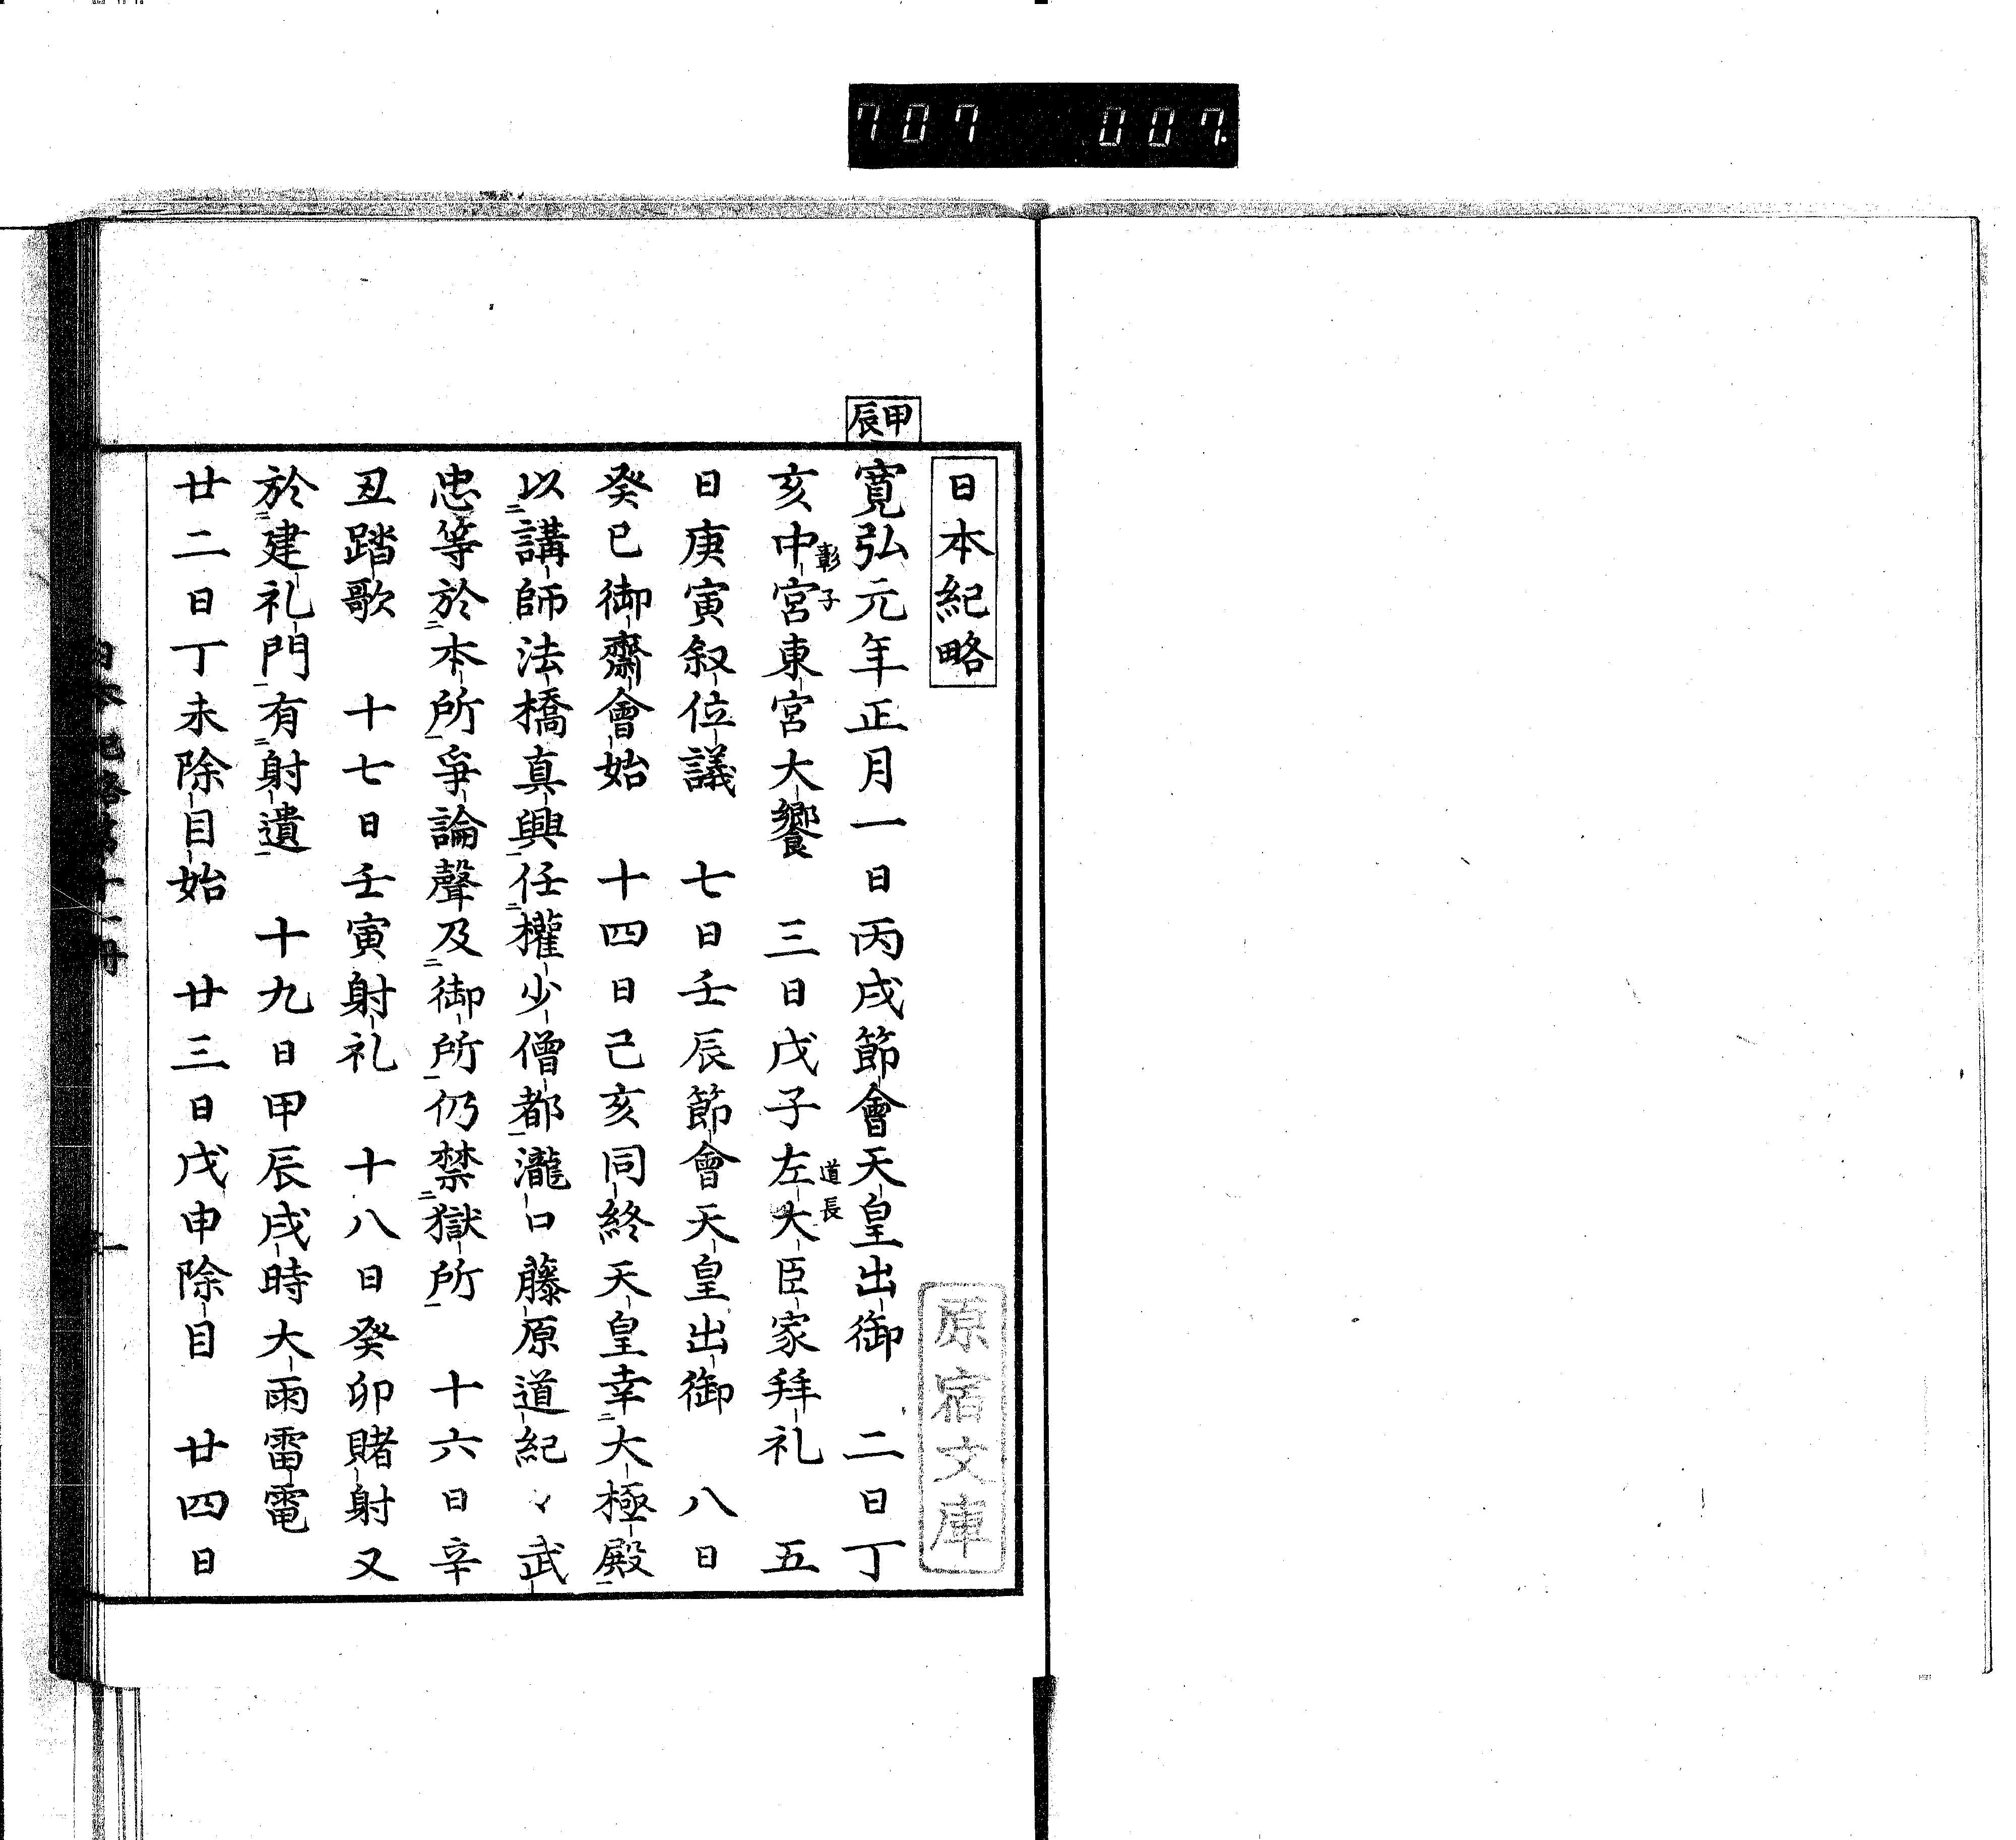 707 007.
日本紀略
甲辰
寬弘元年正月一日丙戌節會天皇出御　二日丁
彰子　道長
亥中宮東宮大饗　三日戊子左大臣家拜礼　五
日庚寅叙位議　七日壬辰節會天皇出御　八日
癸巳御齋會始　十四日己亥同終天皇幸二大極殿一
以二講師法橋真興一任二權少僧都一瀧口藤原道紀〻武
忠等於二本所一爭論聲及二御所一仍禁二獄所一　十六日辛
丑踏歌　十七日壬寅射礼　十八日癸卯賭射又
於二建礼門一有二射遺一　十九日甲辰戌時大雨雷電
廿二日丁未除目始　廿三日戊申除目　廿四日
原宿文庫